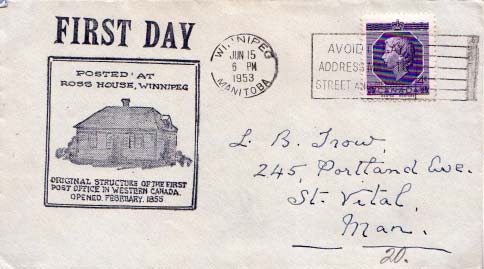 FIRST DAY
POSTED AT
ROSS HOUSE, WINNIPEG
ORIGINAL STRUCTURE OF THE FIRST
POST OFFICE IN WESTERN CANADA.
OPENED, FEBRUARY, 1855
WINNIPEG
JUN 15
6 PM
1953
MANITOBA
AVOID
ADDRESS
STREET AN
CANADA
L. B. Trow,
245, Portland Ave.
St. Vital,
Man.
20.